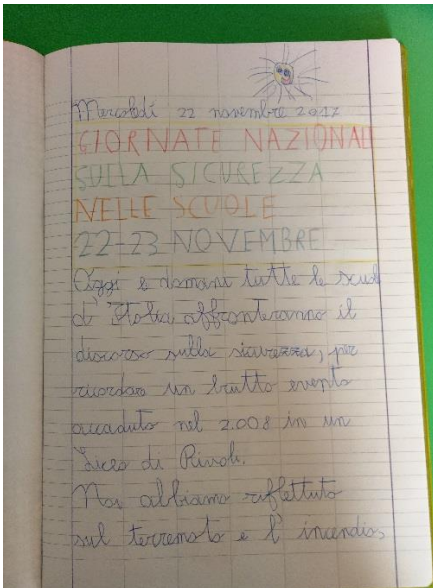 Mercoledì 22 novembre 2017
GIORNATE NAZIONALE
SULLA SICUREZZA
NELLE SCUOLE
22-23 NOVEMBRE
Oggi e domani tutte le scuole
d'Italia affronteranno il
discorso sulla sicurezza, per
ricordare un brutto evento
accaduto nel 2.008 in un
liceo di Rivoli.
Noi abbiamo riflettuto
sul terremoto e l'incendio,